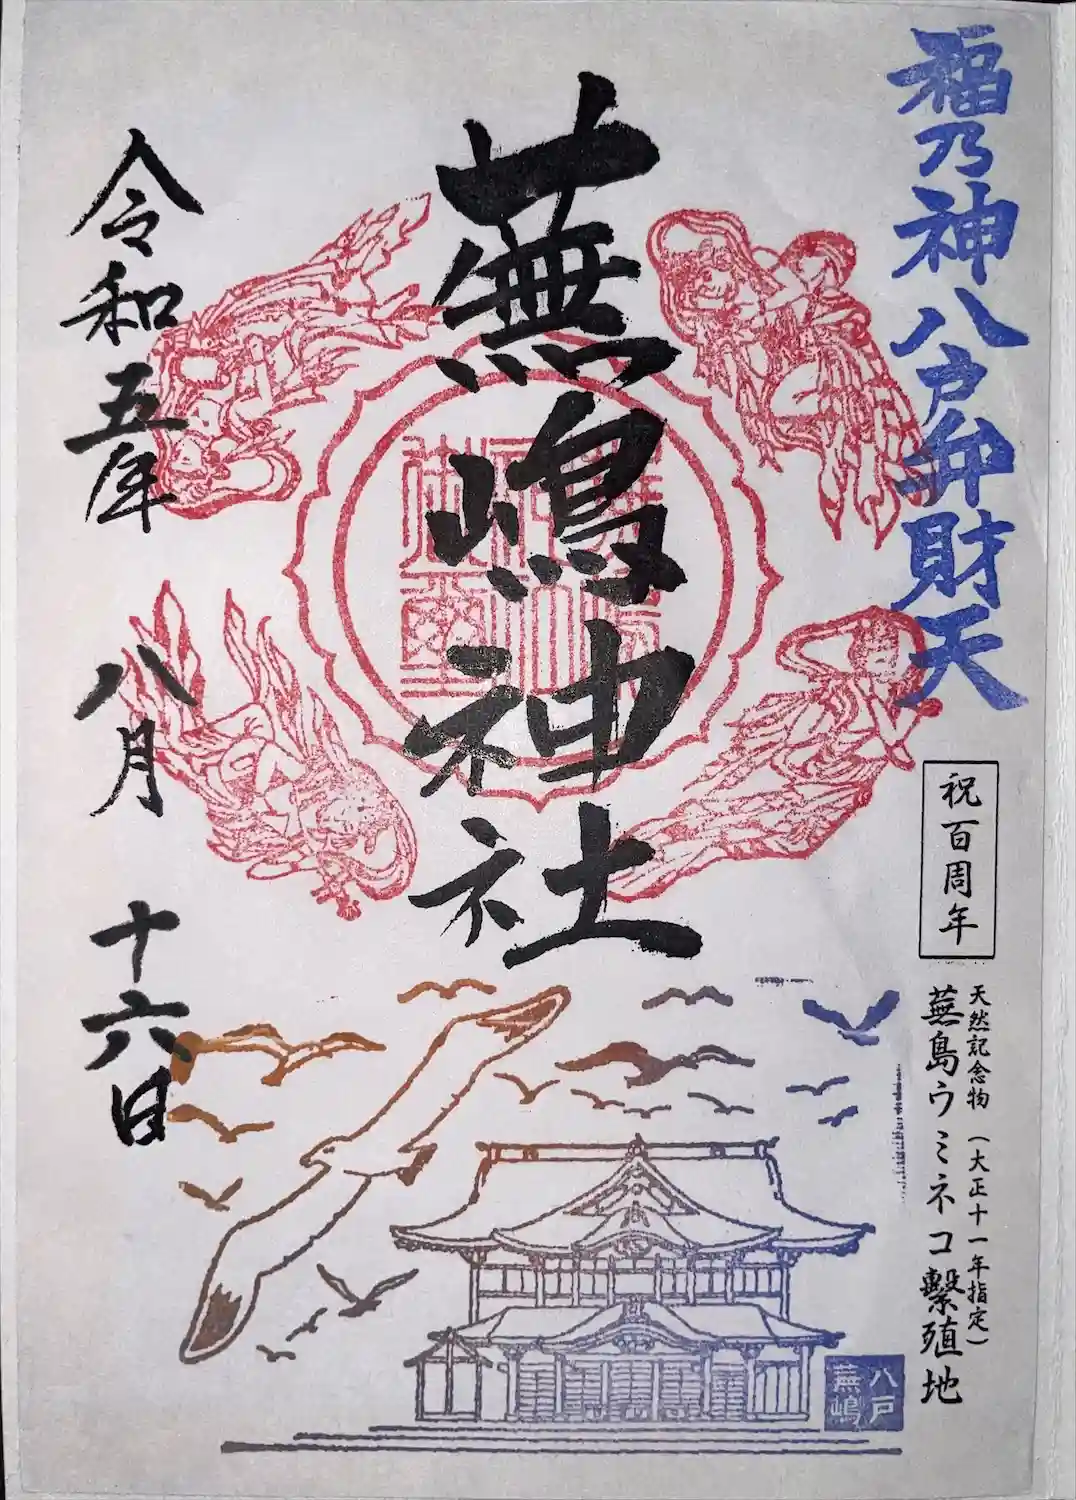 福乃神八戸弁財天
祝百周年
天然記念物 (大正十一年指定)
蕪島ウミネコ繫殖地
蕪嶋神社
令和五年 八月 十六日
八戸
蕪嶋